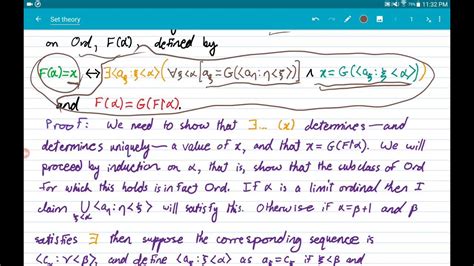 11:32 PM
Set theory
on Ord, F(α), defined by
F(α)=x ↔ ∃⟨a_ξ:ξ<α⟩(∀ξ<α[a_ξ=G(⟨a_η:η<ξ⟩)] ∧ x=G(⟨a_ξ:ξ<α⟩))
and F(α)=G(F↾α).
Proof: We need to show that ∃...(x) determines—and
determines uniquely—a value of x, and that x=G(F↾α). We will
proceed by induction on α, that is, show the subclass of Ord
for which this holds is in fact Ord. If α is a limit ordinal then I
claim ⋃_{ξ<α}⟨a_η:η<ξ⟩ will satisfy this. Otherwise if α=β+1 and β
satisfies ∃ then suppose the corresponding sequence is
⟨c_γ:γ<β⟩, and define ⟨a_ξ:ξ<α⟩ as a_ξ=c_ξ if ξ<β and